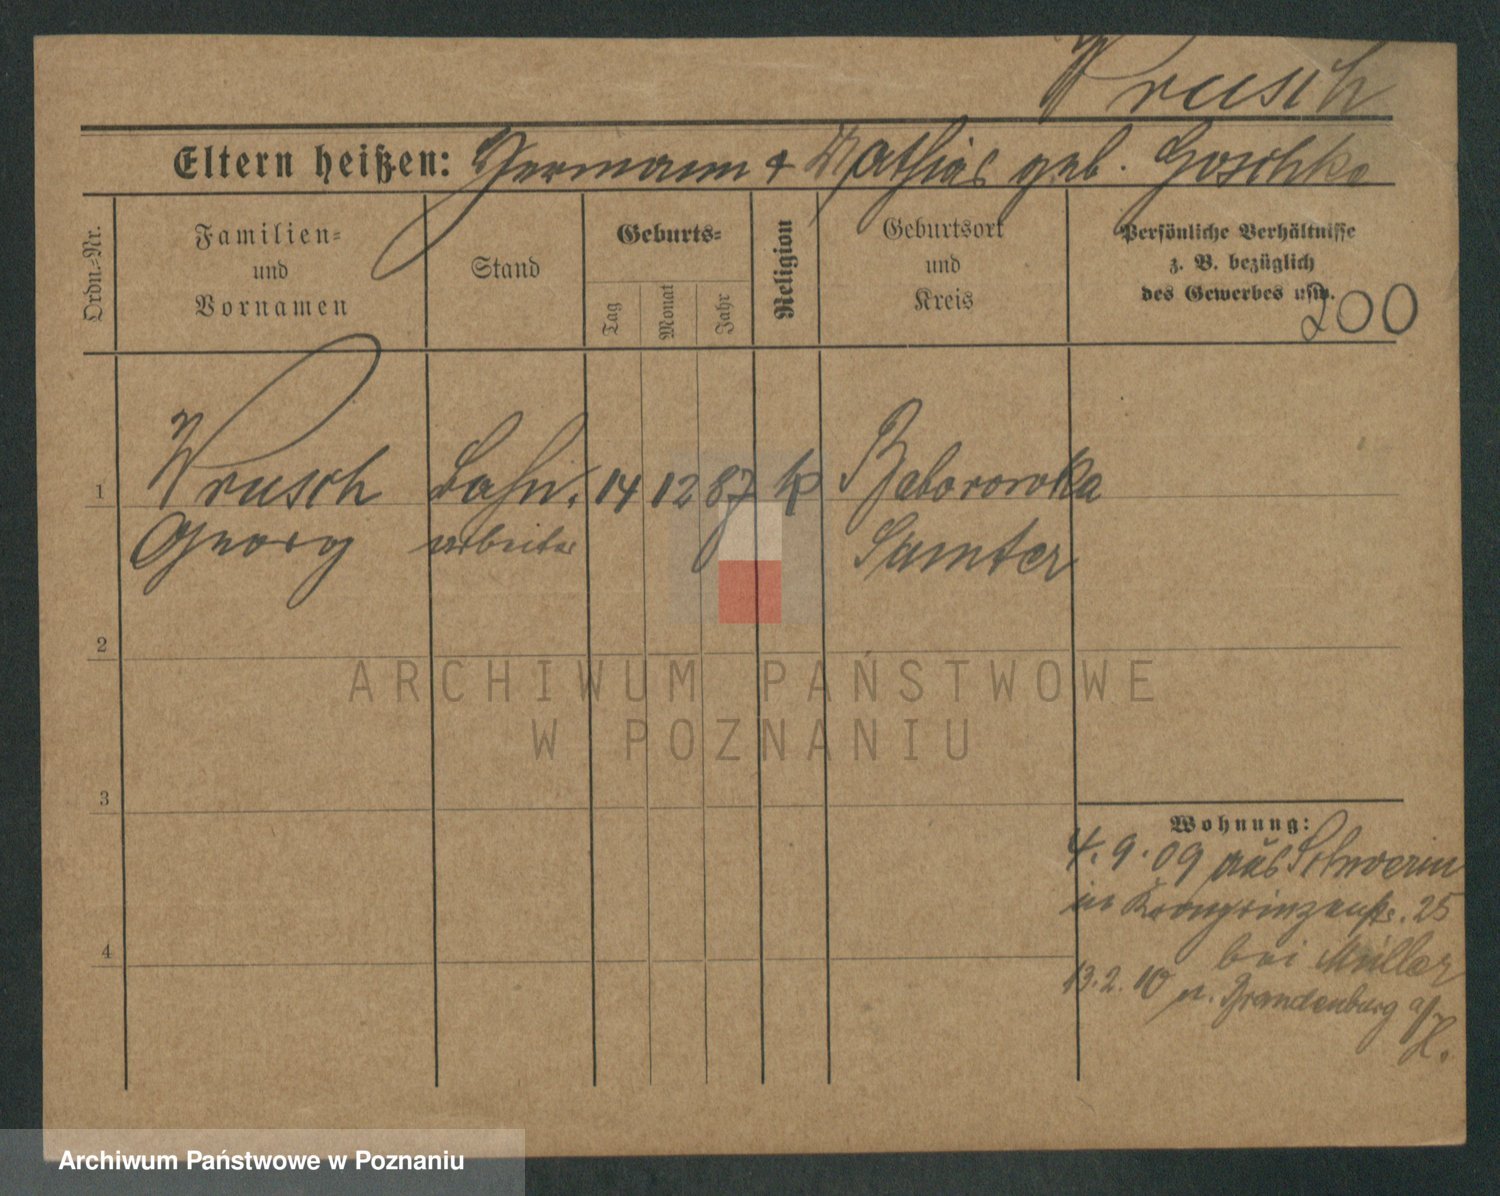 Wrusch
Eltern heißen: Hermann & Mathias geb. Goschke
Ordn.-Nr.
Familien-
und
Vornamen
Stand
Geburts-
Tag
Monat
Jahr
Religion
Geburtsort
und
Kreis
Persönliche Verhältnisse
z. B. bezüglich
des Gewerbes usw.
200
1 Wrusch Bahn. 14 12 87 k Baborowka
Georg arbeiter Samter
2
3
4
Wohnung:
4.9.09 aus Schwerin
in Kronprinzenstr. 25
bei Müller
13.2.10 n. Brandenburg a/
H.
ARCHIWUM PAŃSTWOWE
W POZNANIU
Archiwum Państwowe w Poznaniu